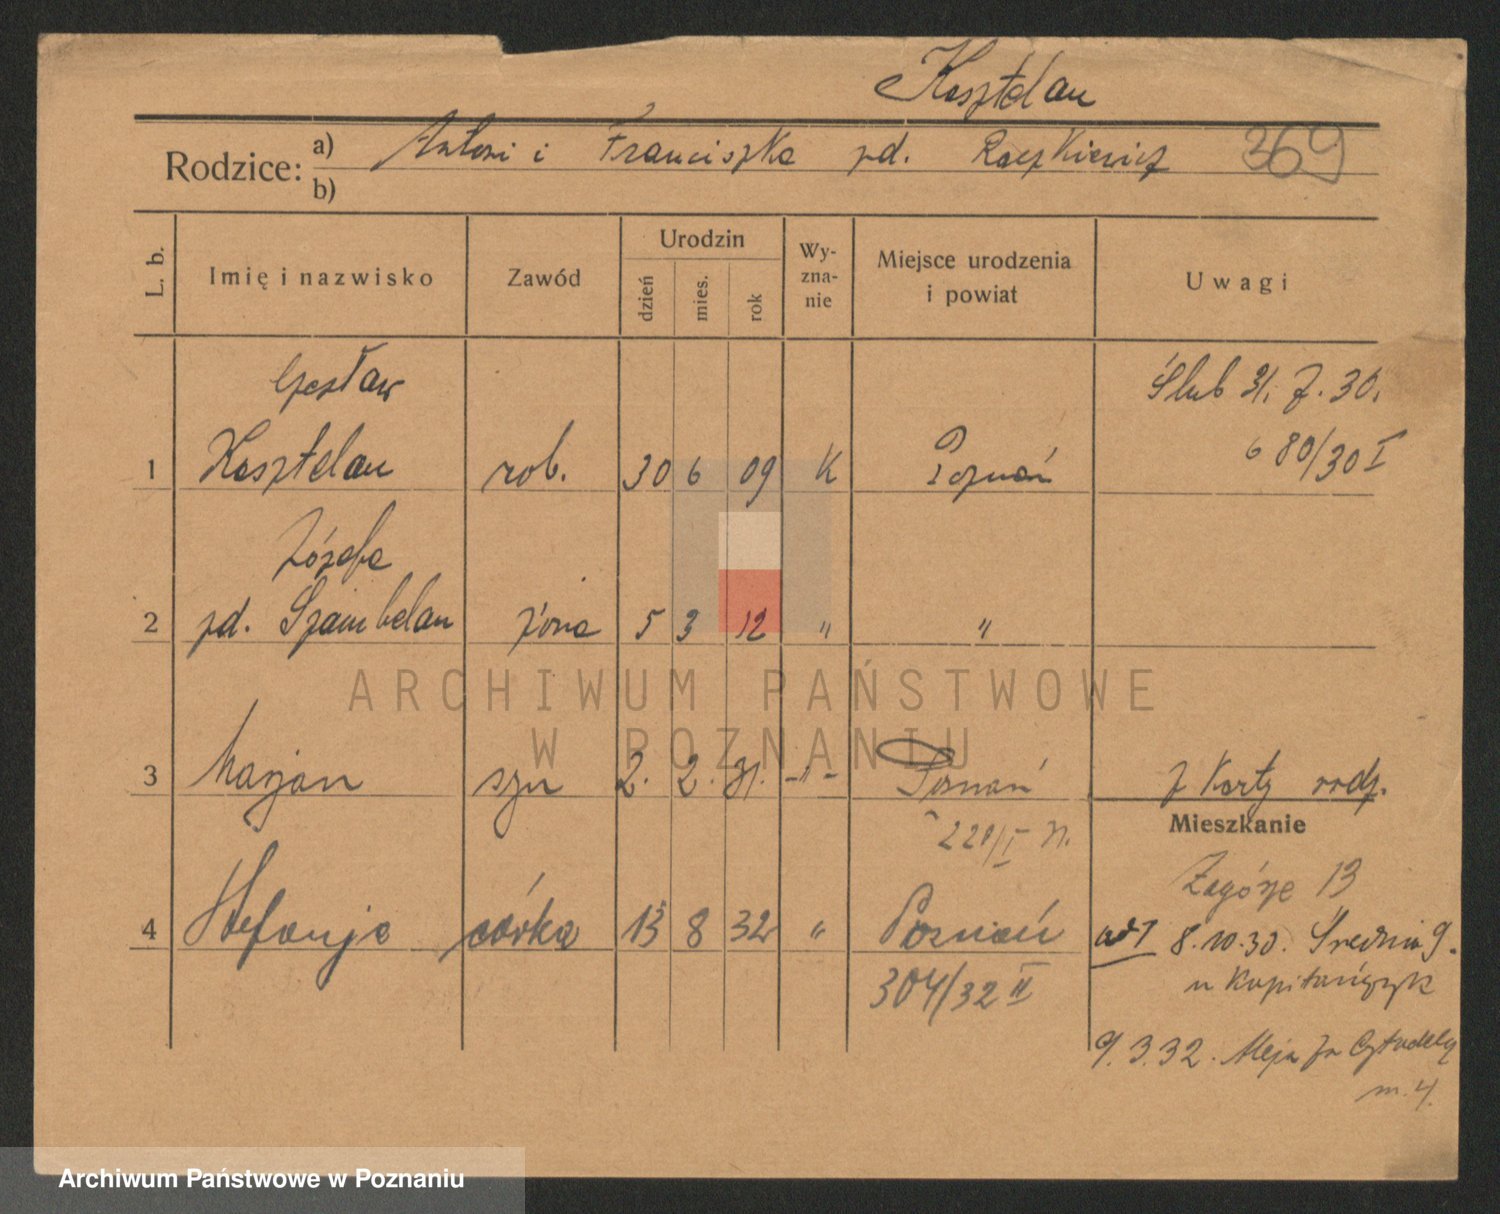 Kasztelan
Rodzice: a) Antoni i Franciszka zd. Raczkiewicz 369
b)
L. b. Imię i nazwisko Zawód Urodzin dzień mies. rok Wy-zna-nie Miejsce urodzenia i powiat Uwagi
Czesław Ślub 31. 7. 30.
1 Kasztelan rob. 30 6 09 K Poznań 680/30 I
Józefa
2 zd. Szambelan żona 5 3 12 " "
3 Marjan syn 2. 2. 31. -"- Poznań z Karty rodz.
Mieszkanie
220/I 31.
Zagórze 13
4 Stefanja córka 13 8 32 " Poznań od 8.10.30. Średnia 9.
304/32 II u Kapitańczyk
9.3.32. Aleja za Cytadelą
m. 4.
ARCHIWUM PAŃSTWOWE
W POZNANIU
Archiwum Państwowe w Poznaniu